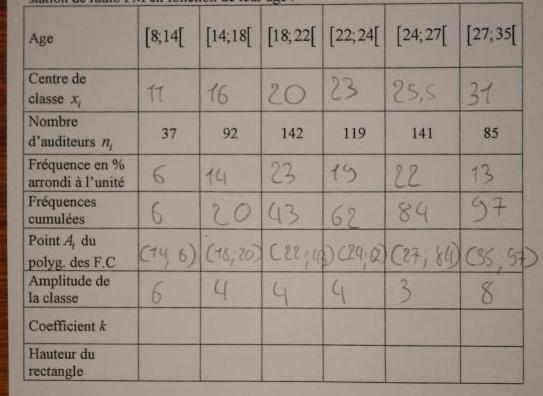 station de radio FM en fonction de leur âge :
Age [8;14[ [14;18[ [18;22[ [22;24[ [24;27[ [27;35[
Centre de
classe xᵢ 11 16 20 23 25,5 31
Nombre
d'auditeurs nᵢ 37 92 142 119 141 85
Fréquence en %
arrondi à l'unité 6 14 23 19 22 13
Fréquences
cumulées 6 20 43 62 84 97
Point Aᵢ du
polyg. des F.C (14; 6) (18; 20) (22; 43) (24; 62) (27; 84) (35; 97)
Amplitude de
la classe 6 4 4 4 3 8
Coefficient k
Hauteur du
rectangle